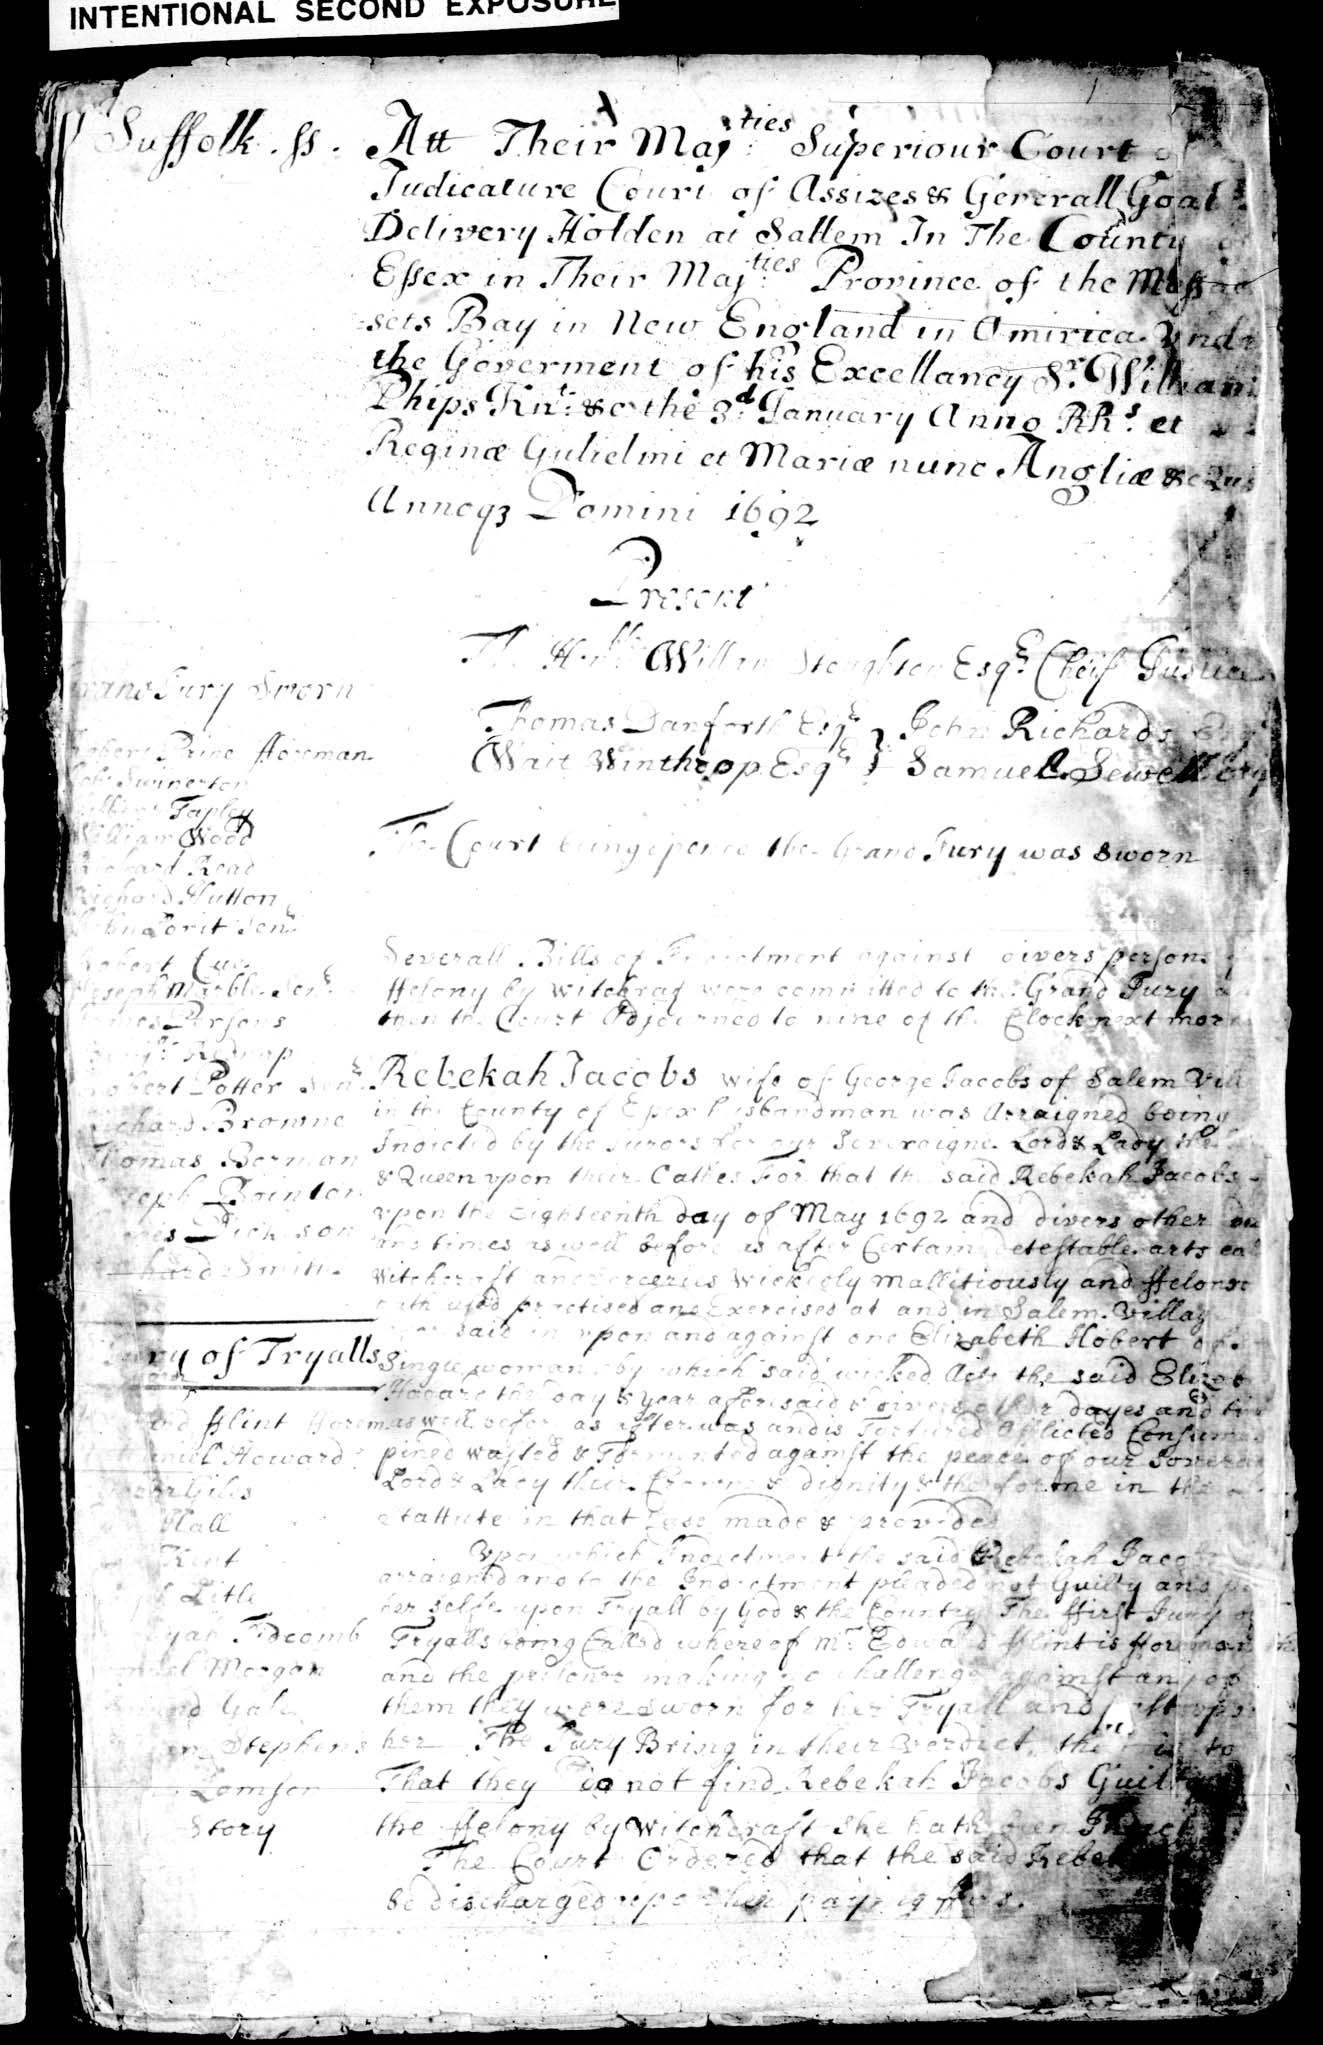 INTENTIONAL SECOND EXPOSURE
Suffolk. ss.
Att Their Maj:ties Superiour Court of
Judicature Court of Assizes & Generall Goal
Delivery Holden at Sallem In The County
Essex in Their Maj:ties Province of the Massac
sets Bay in New England in Amirica. Vnde
the Goverment of his Excellancy Sr. William
Phips Knt: &c the 3d January Anno RRs. et
Reginæ Gulielmi et Mariæ nunc Angliæ &c
Annoq3 Domini 1692
Present
William Stoughton Esqr. Cheif Justice
Thomas Danforth Esqr } John Richards Esqr
Wait Winthrop Esqr } Samuel Sewell Esq
The Court being opened the Grand Jury was sworn
Grand Jury Sworn
Robert Prine fforeman
Swinerton
Tapley
William Wood
Richard Read
Richard Hutton
John Lovit Senr
Robert Cue
Joseph Marble Senr
Persons
Robert Potter Senr
Richard Browne
Thomas Borman
Joseph Bointon
Dickison
Smith
Severall Bills of Indictment against divers persons
ffelony by witchcraft were committed to the Grand Jury
then the Court Adjourned to nine of the Clock next morn
Rebekah Jacobs wife of George Jacobs of Salem Vill
in the County of Essex husbandman was Arraigned being
Indicted by the Jurors for our Soveraigne Lord & Lady the
& Queen vpon their Oathes For that the said Rebekah Jacobs
vpon the Eighteenth day of May 1692 and divers other
and times as well before as after Certaine detestable arts
Witchcraft and sorceries Wickedly Mallitiously and ffelon
hath used practised and Exercised at and in Salem Villag
said in vpon and against one Elizabeth Hobert of
Single woman by which said wicked Acts the said Eliz
the day & year afforesaid & divers other dayes and
as well before as after was and is Tortured Afflicted Consumed
pined wasted & Tormented against the peace of our Sovera
Lord & Lady their Crowne & dignity & the forme in the
stattute in that Case made & provided
Vpon which Indictment the said Rebekah Jacobs
arraigned and to the Indictment pleaded not Guilty and
her selfe upon Tryall by God & the Country The ffirst Jury of
Tryalls being Called whereof Mr. Edward fflint is fforeman
and the prisoner making no challenge against any of
them they were sworn for her Tryall and
her The Jury Bring in their verdict,
That they do not find Rebekah Jacobs Guilty
the ffelony by witchcraft She hath been
The Court Ordered that the said Rebe
be discharged upon her paying ffees.
Jury of Tryalls
fflint fforeman
Howard
Giles
Hall
Kent
Litle
Tidcomb
Morgan
Gale
Stephens
Lomson
Story